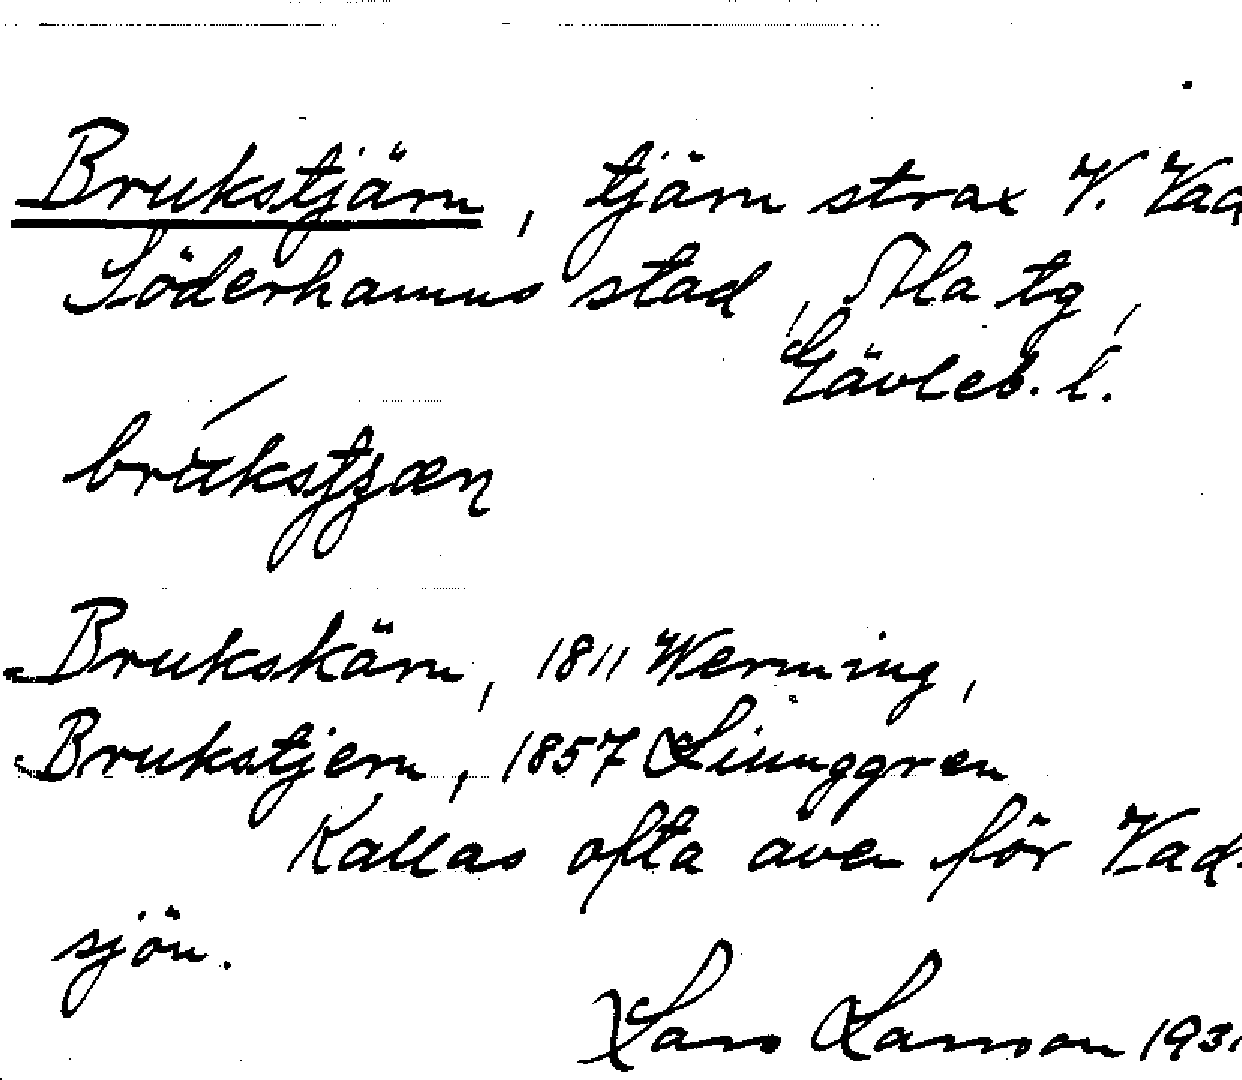 Brukstjärn, tjärn strax V. Vad
Söderhamns stad, Ala tg,
Gävleb. l.
brukstjæn
Brukskärn, 1811 Wenning,
Brukstjern, 1857 Liunggren
Kallas ofta aven för Vad-
sjön.
Lars Larsson 193